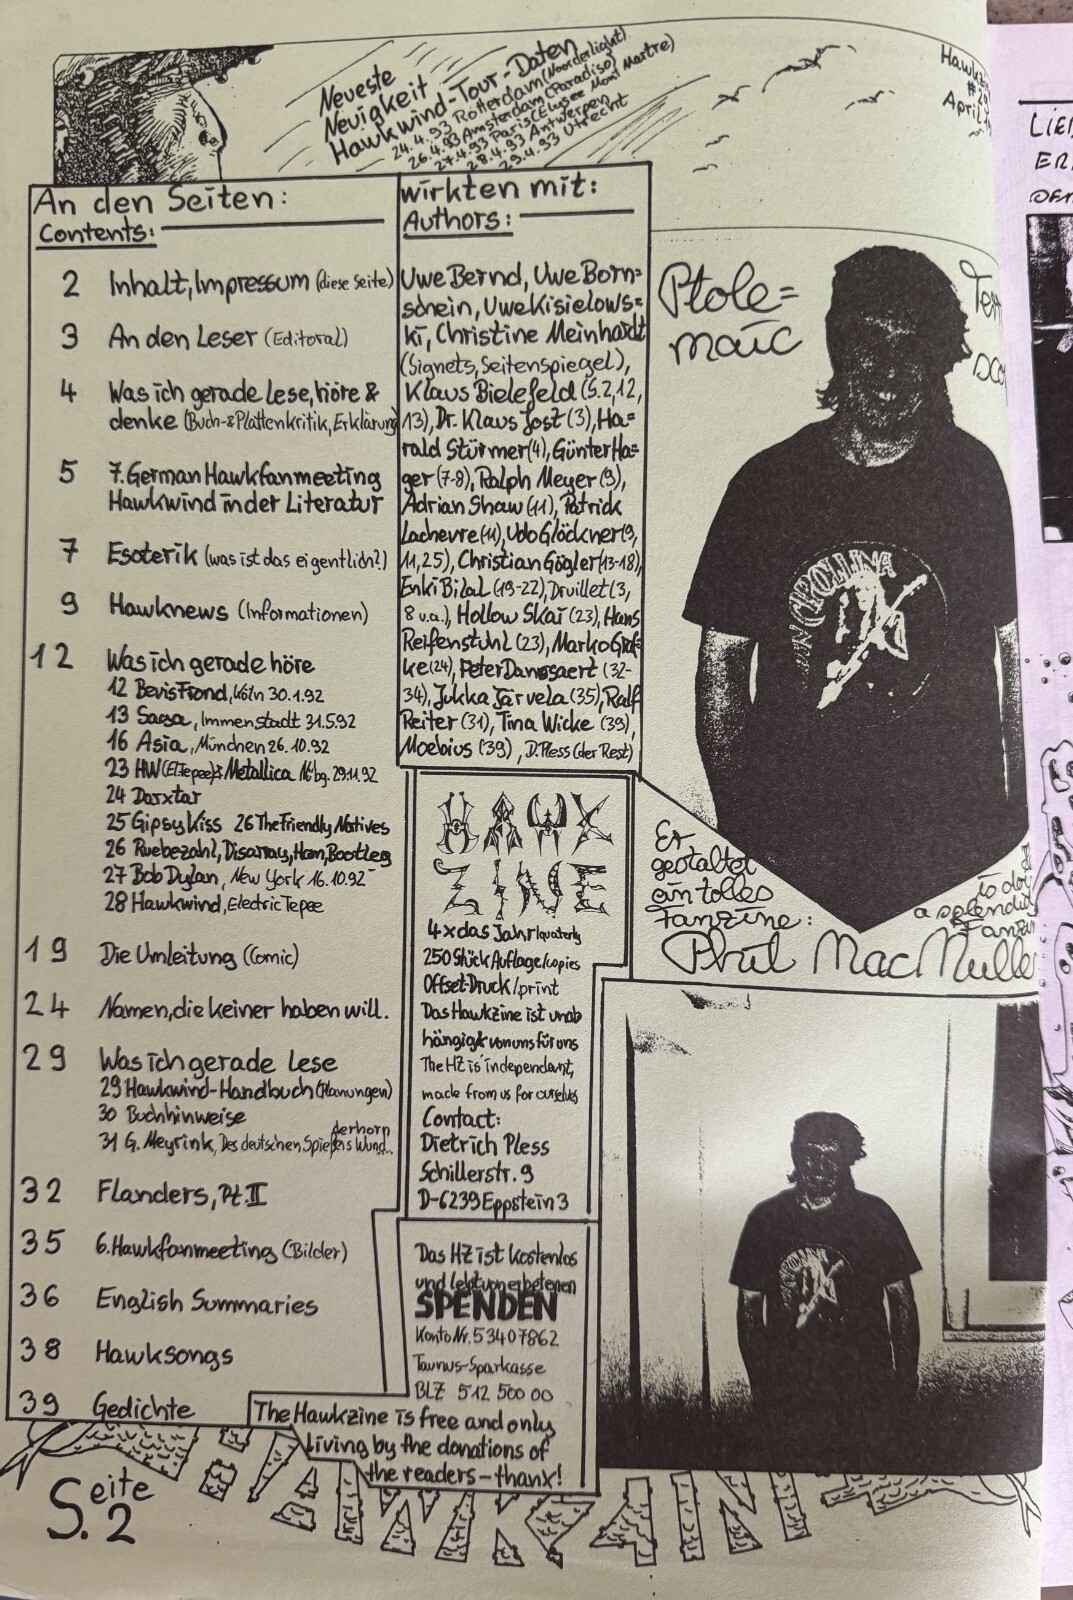 Neueste
Neuigkeit
Hawkwind-Tour-Daten
24.4.93 Rotterdam (Noorderlight)
26.4.93 Amsterdam (Paradiso)
27.4.93 Paris (Elysee Mont Martre)
28.4.93 Antwerpen
29.4.93 Utrecht
April
An den Seiten:
Contents:
2 Inhalt, Impressum (diese Seite)
3 An den Leser (Editoral)
4 Was ich gerade lese, höre &
denke (Buch-&Plattenkritik, Erklärung
5 7. German Hawkfanmeeting
Hawkwind in der Literatur
7 Esoterik (was ist das eigentlich?)
9 Hawknews (Informationen)
12 Was ich gerade höre
12 Bevis Frond, Köln 30.1.92
13 Saga, Immenstadt 31.5.92
16 Asia, München 26.10.92
23 HW (El.Tepee) & Metallica Nübg. 29.11.92
24 Darxtar
25 Gipsy Kiss 26 The Friendly Natives
26 Ruebezahl, Disarray, Ham, Bootleg
27 Bob Dylan, New York 16.10.92
28 Hawkwind, Electric Tepee
19 Die Umleitung (Comic)
24 Namen, die keiner haben will.
29 Was ich gerade lese
29 Hawkwind-Handbuch (Planungen)
30 Buchhinweise
31 G. Meyrink, Des deutschen Spießers Wund..
derhorn
32 Flanders, Pt. II
35 6. Hawkfanmeeting (Bilder)
36 English Summaries
38 Hawksongs
39 Gedichte
wirkten mit:
Authors:
Uwe Bernd, Uwe Born=
schein, Uwe Kisielows=
ki, Christine Meinhardt
(Signets, Seitenspiegel),
Klaus Bielefeld (S.2,12,
13), Dr. Klaus Jost (3), Ha=
rald Stürmer (4), Günter Ha=
ger (7-8), Ralph Meyer (9),
Adrian Shaw (11), Patrick
Lachevre (11), Udo Glöckner (9,
11,25), Christian Gögler (13-18),
Enki Bilal (19-22), Druillet (3,
8 u.a.), Hollow Skai (23), Hans
Reifenstuhl (23), Marko Graf=
ke (24), Peter Danssaert (32-
34), Jukka Järvela (35), Ralf
Reiter (31), Tina Wicke (39),
Moebius (39), D. Pless (der Rest)
HAWK
ZINE
4x das Jahr/quaterly
250 Stück Auflage/copies
Offset-Druck/print
Das Hawkzine ist unab
hängigk von uns für uns
The HZ is independant,
made from us for ourselves
Contact:
Dietrich Pless
Schillerstr. 9
D-6239 Eppstein 3
Das HZ ist kostenlos
und lebt von erbetenen
SPENDEN
Konto Nr. 53407862
Taunus-Sparkasse
BLZ 512 500 00
The Hawkzine is free and only
living by the donations of
the readers - thanx!
Ptole=
maic
NEW CAROLINA
Er
gestaltet
ein tolles
Fanzine:
to do
a splendid
Fanzin
Phil MacMulle
Seite
S. 2